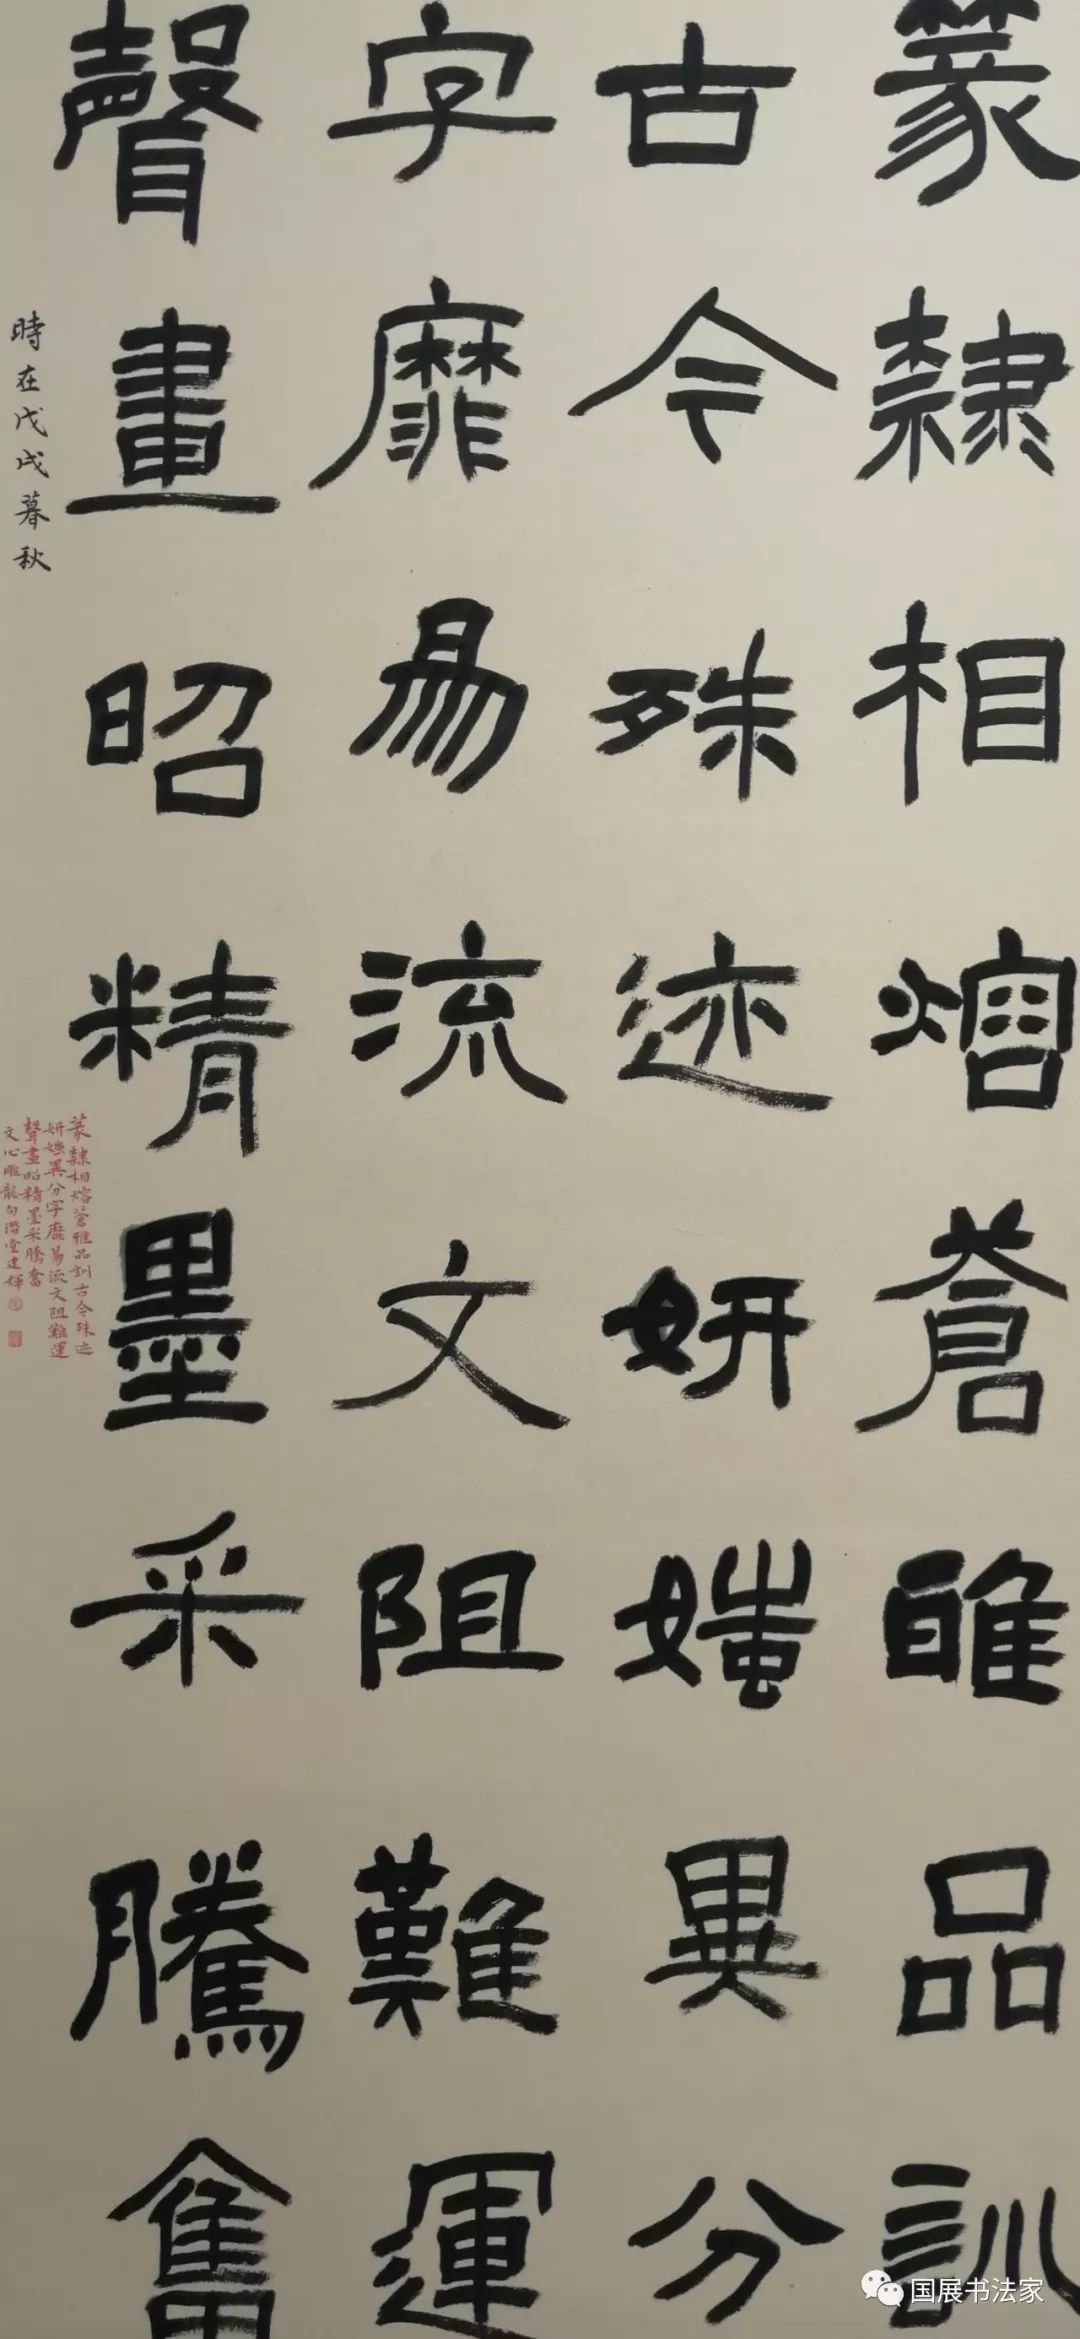 篆隸相熔蒼雅品訓
古今殊迹妍媸異分
字靡易流文阻難運
聲畫昭精墨采騰奮
時在戊戌暮秋
篆隸相熔蒼雅品訓古今殊迹
妍媸異分字靡易流文阻難運
聲畫昭精墨采騰奮
文心雕龍句潛堂建輝
国展书法家